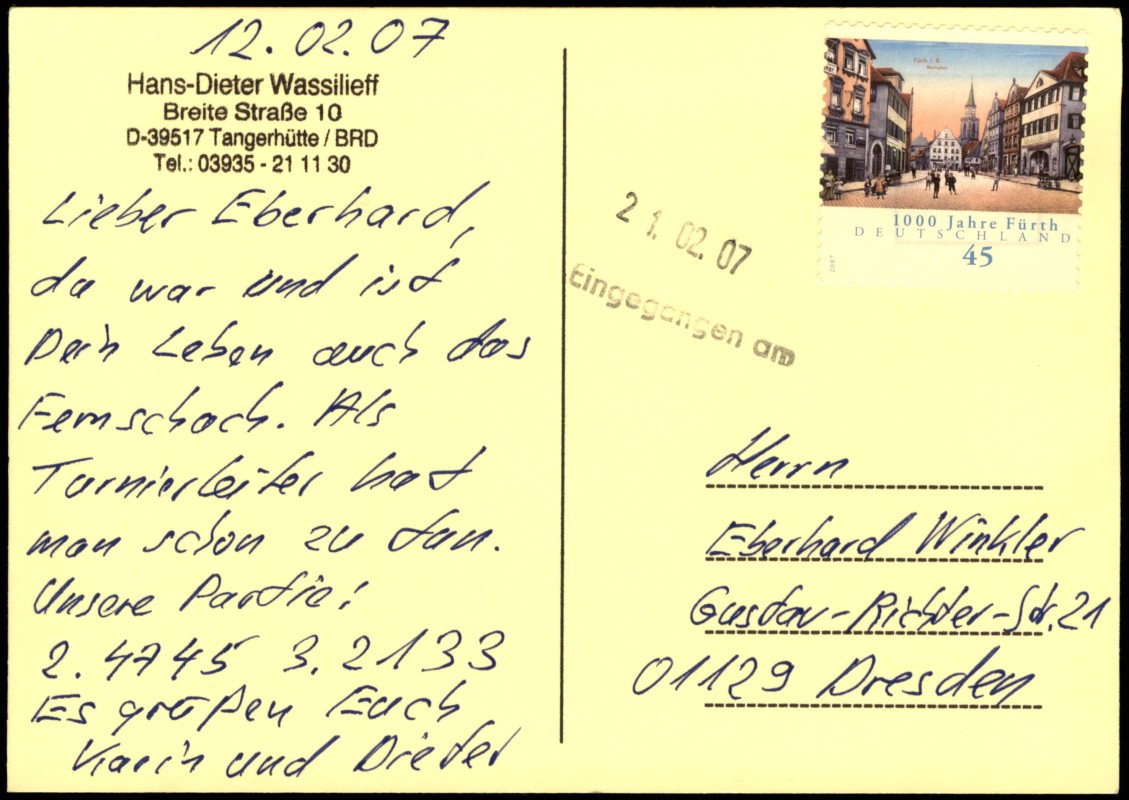 12.02.07
Hans-Dieter Wassilieff
Breite Straße 10
D-39517 Tangerhütte / BRD
Tel.: 03935 - 21 11 30
Lieber Eberhard,
da war und ist
Dein Leben auch das
Fernschach. Als
Turnierleiter hat
man schon zu tun.
Unsere Partie:
2. 4745 3. 2133
Es grüßen Euch
Karin und Dieter
Fürth i. B.
1000 Jahre Fürth
DEUTSCHLAND
45
2007
21.02.07
Eingegangen am
Herrn
Eberhard Winkler
Gustav-Richter-Str. 21
01129 Dresden